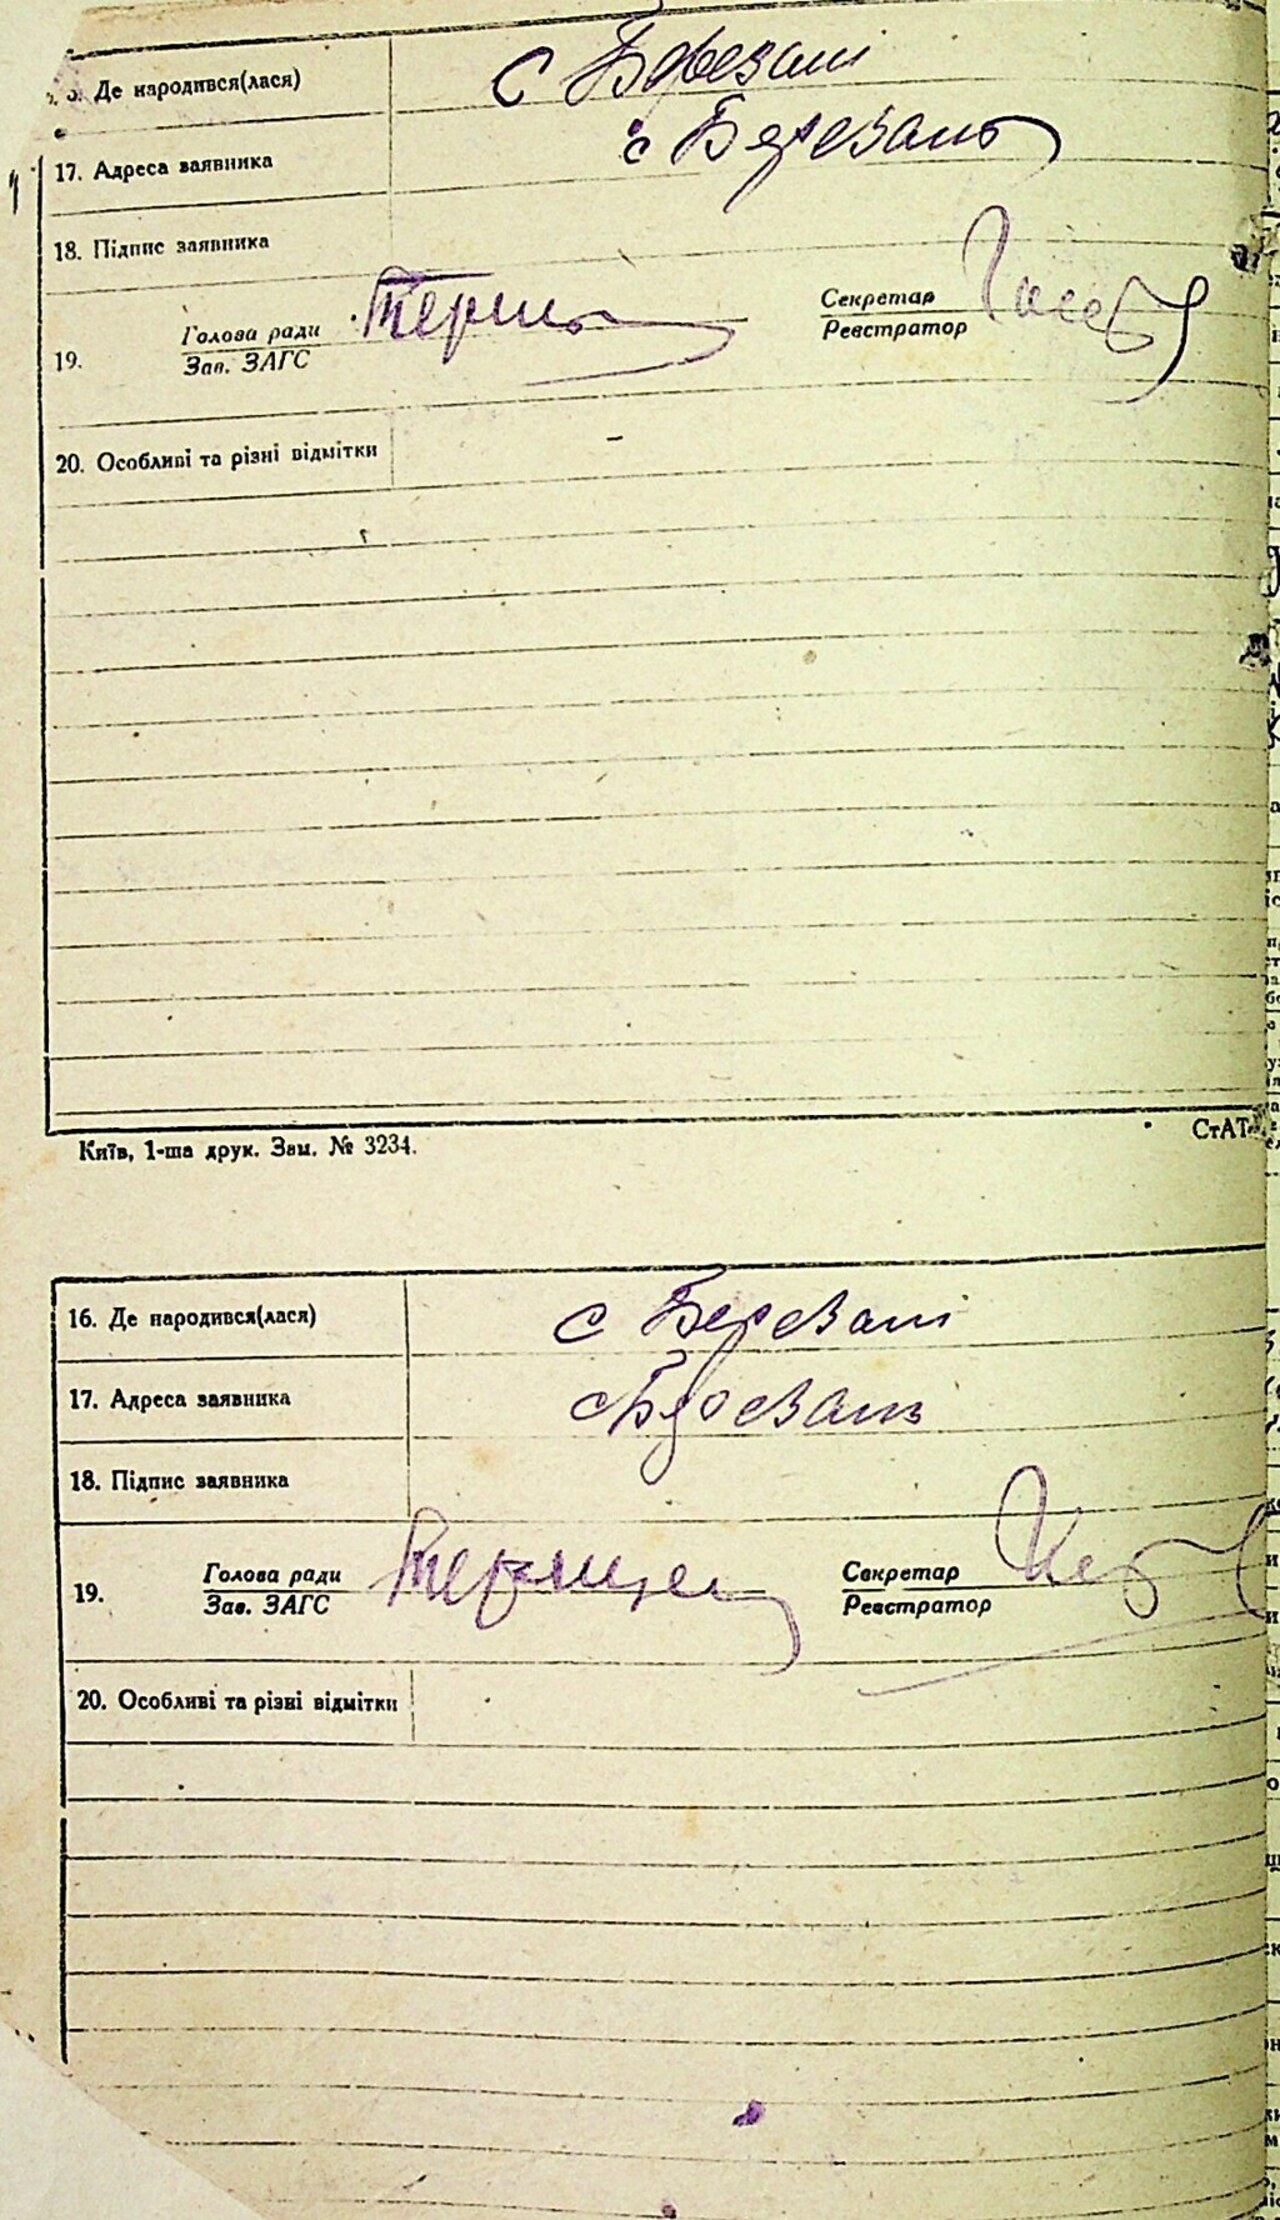 16. Де народився(лася) с Березані
17. Адреса заявника с Березань
18. Підпис заявника
19. Голова ради Секретар
Зав. ЗАГС Реєстратор
20. Особливі та різні відмітки –
Київ, 1-ша друк. Зам. № 3234.
СтАТ
16. Де народився(лася) с Березані
17. Адреса заявника с Березань
18. Підпис заявника
19. Голова ради Секретар
Зав. ЗАГС Реєстратор
20. Особливі та різні відмітки